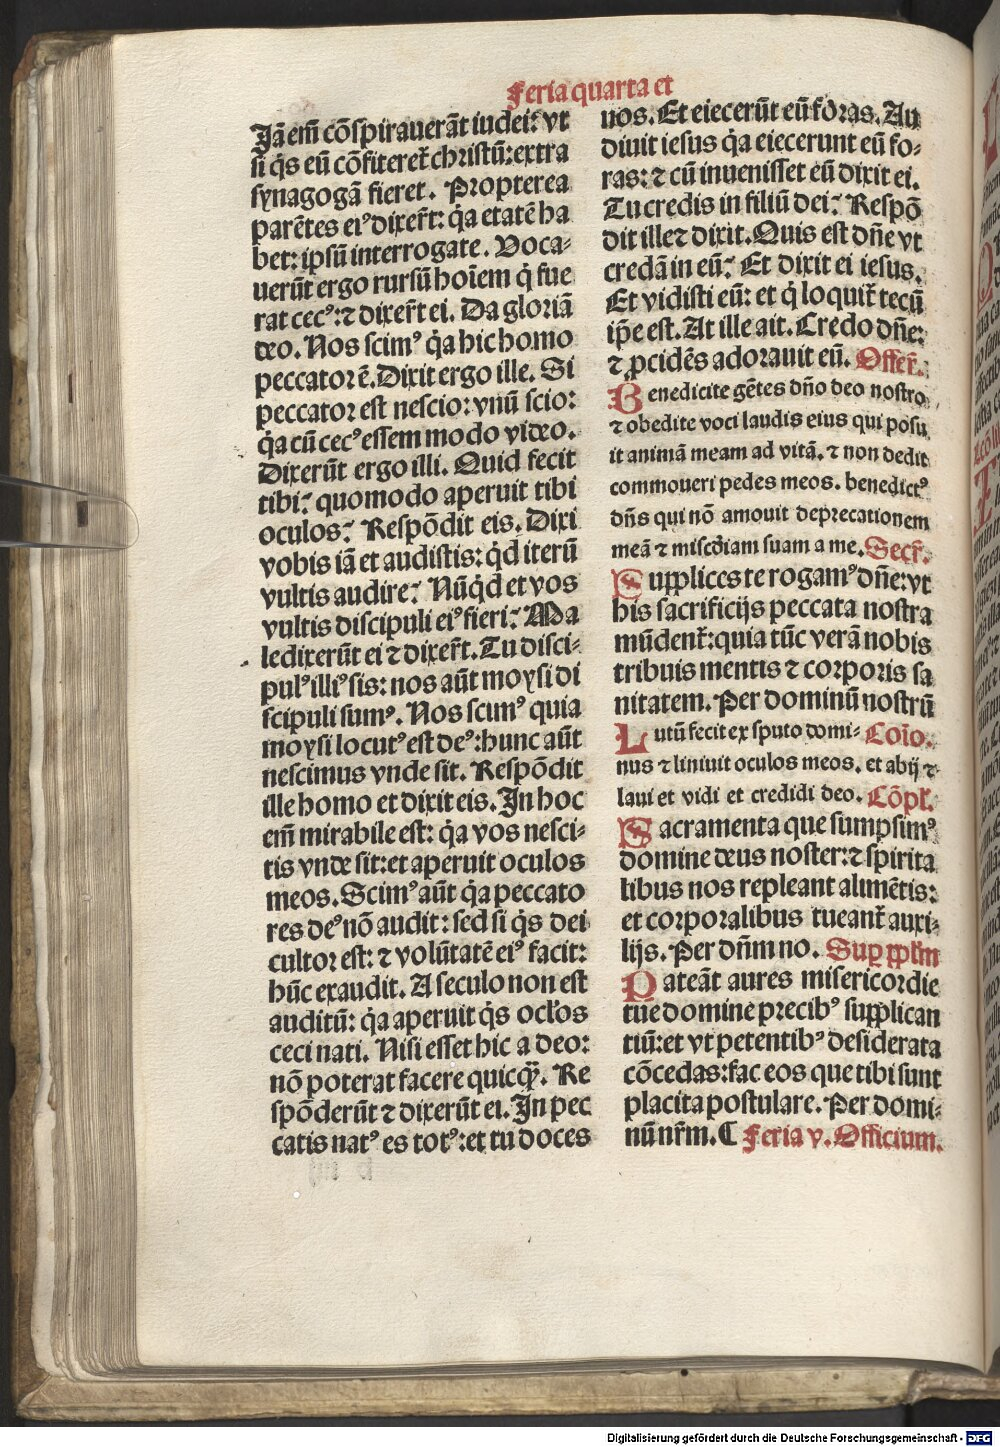 Feria quarta et
Jā em̄ cōspirauerāt iudei: vt
si q̇s eū cōfiteret᷑ christū: extra
synagogā fieret. Propterea
parētes eiꝰ dixer̄t: q̇a etatē ha
bet: ipsū interrogate. Voca⸗
uerūt ergo rursū hoīem q̇ fue
rat cecꝰ: ⁊ dixer̄t ei. Da gloriā
deo. Nos scimꝰ q̇a hic homo
peccator ē. Dixit ergo ille. Si
peccator est nescio: vnū scio:
q̇a cū cecꝰ essem modo video.
Dixerūt ergo illi. Quid fecit
tibi: quomodo aperuit tibi
oculos: Respōdit eis. Dixi
vobis iā et audistis: q̇d iterū
vultis audire: Nūq̇d et vos
vultis discipuli eiꝰ fieri: Ma
ledixerūt ei ⁊ dixer̄t. Tu disci⸗
pulꝰ illiꝰ sis: nos aūt moysi di
scipuli sumꝰ. Nos scimꝰ quia
moysi locutꝰ est deꝰ: hunc aūt
nescimus vnde sit. Respōdit
ille homo et dixit eis. In hoc
em̄ mirabile est: q̇a vos nesci⸗
tis vnde sit: et aperuit oculos
meos. Scimꝰ aūt q̇a peccato
res deꝰ nō audit: sed si q̇s dei
cultor est: ⁊ volūtatē eiꝰ facit:
hūc exaudit. A seculo non est
auditū: q̇a aperuit q̇s ocl̓os
ceci nati. Nisi esset hic a deo:
nō poterat facere quicq̄ꝫ. Re
spōderūt ⁊ dixerūt ei. In pec
catis natꝰ es totꝰ: et tu doces
nos. Et eiecerūt eū foras. Au
diuit iesus q̇a eiecerunt eū fo⸗
ras: ⁊ cū inuenisset eū dixit ei.
Tu credis in filiū dei: Respō
dit ille ⁊ dixit. Quis est dn̄e vt
credā in eū: Et dixit ei iesus.
Et vidisti eū: et q̇ loquit᷑ tecū
ip̄e est. At ille ait. Credo dn̄e:
⁊ ꝓcidēs adorauit eū. Offer̄.
Benedicite gētes dn̄o deo nostro
⁊ obedite voci laudis eius qui posu
it animā meam ad vitā. ⁊ non dedit
commoueri pedes meos. benedictꝰ
dn̄s qui nō amouit deprecationem
meā ⁊ misc̄diam suam a me. Secr̄.
Supplices te rogamꝰ dn̄e: vt
his sacrificijs peccata nostra
mūdent᷑: quia tūc verā nobis
tribuis mentis ⁊ corporis sa
nitatem. Per dominū nostrū
Lutū fecit ex sputo domi⸗ Coīo.
nus ⁊ liniuit oculos meos. et abij ⁊
laui et vidi et credidi deo. Cōpl̓.
Sacramenta que sumpsimꝰ
domine deus noster: ⁊ spirita
libus nos repleant alimētis:
et corporalibus tueant᷑ auxi⸗
lijs. Per dn̄m no. Sup pplm̄
Pateāt aures misericordie
tue domine precibꝰ supplican
tiū: et vt petentibꝰ desiderata
cōcedas: fac eos que tibi sunt
placita postulare. Per domi⸗
nū nr̄m. C Feria v. Officium.
Digitalisierung gefördert durch die Deutsche Forschungsgemeinschaft - DFG